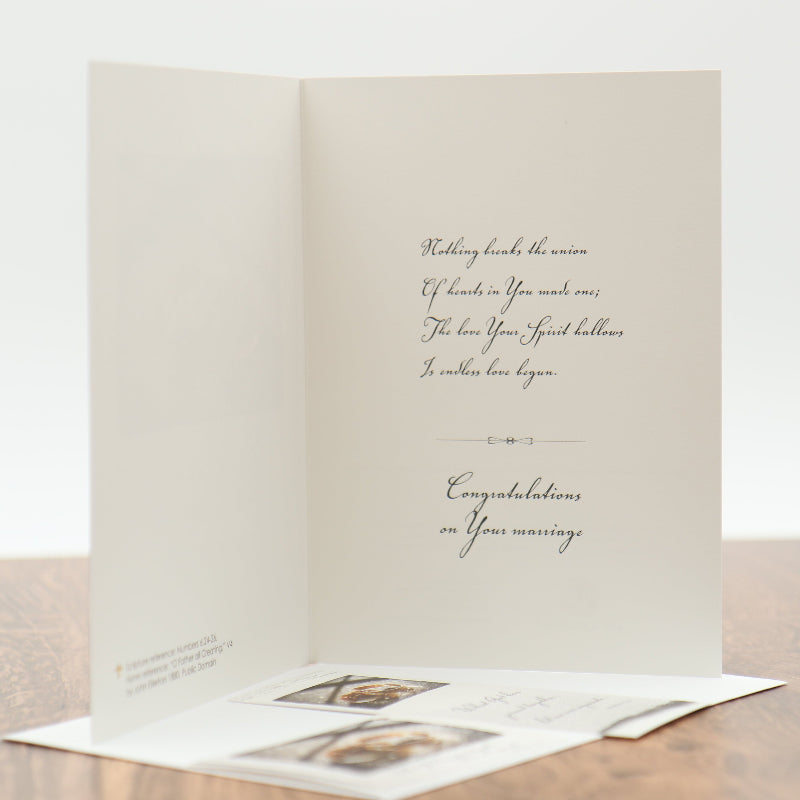 Scripture reference: Numbers 6:24-26.
Hymn reference: "O Father all Creating," V4
by John Ellerton, 1880. Public Domain
Nothing breaks the union
Of hearts in You made one;
The love Your Spirit hallows
Is endless love begun.
Congratulations
on Your marriage